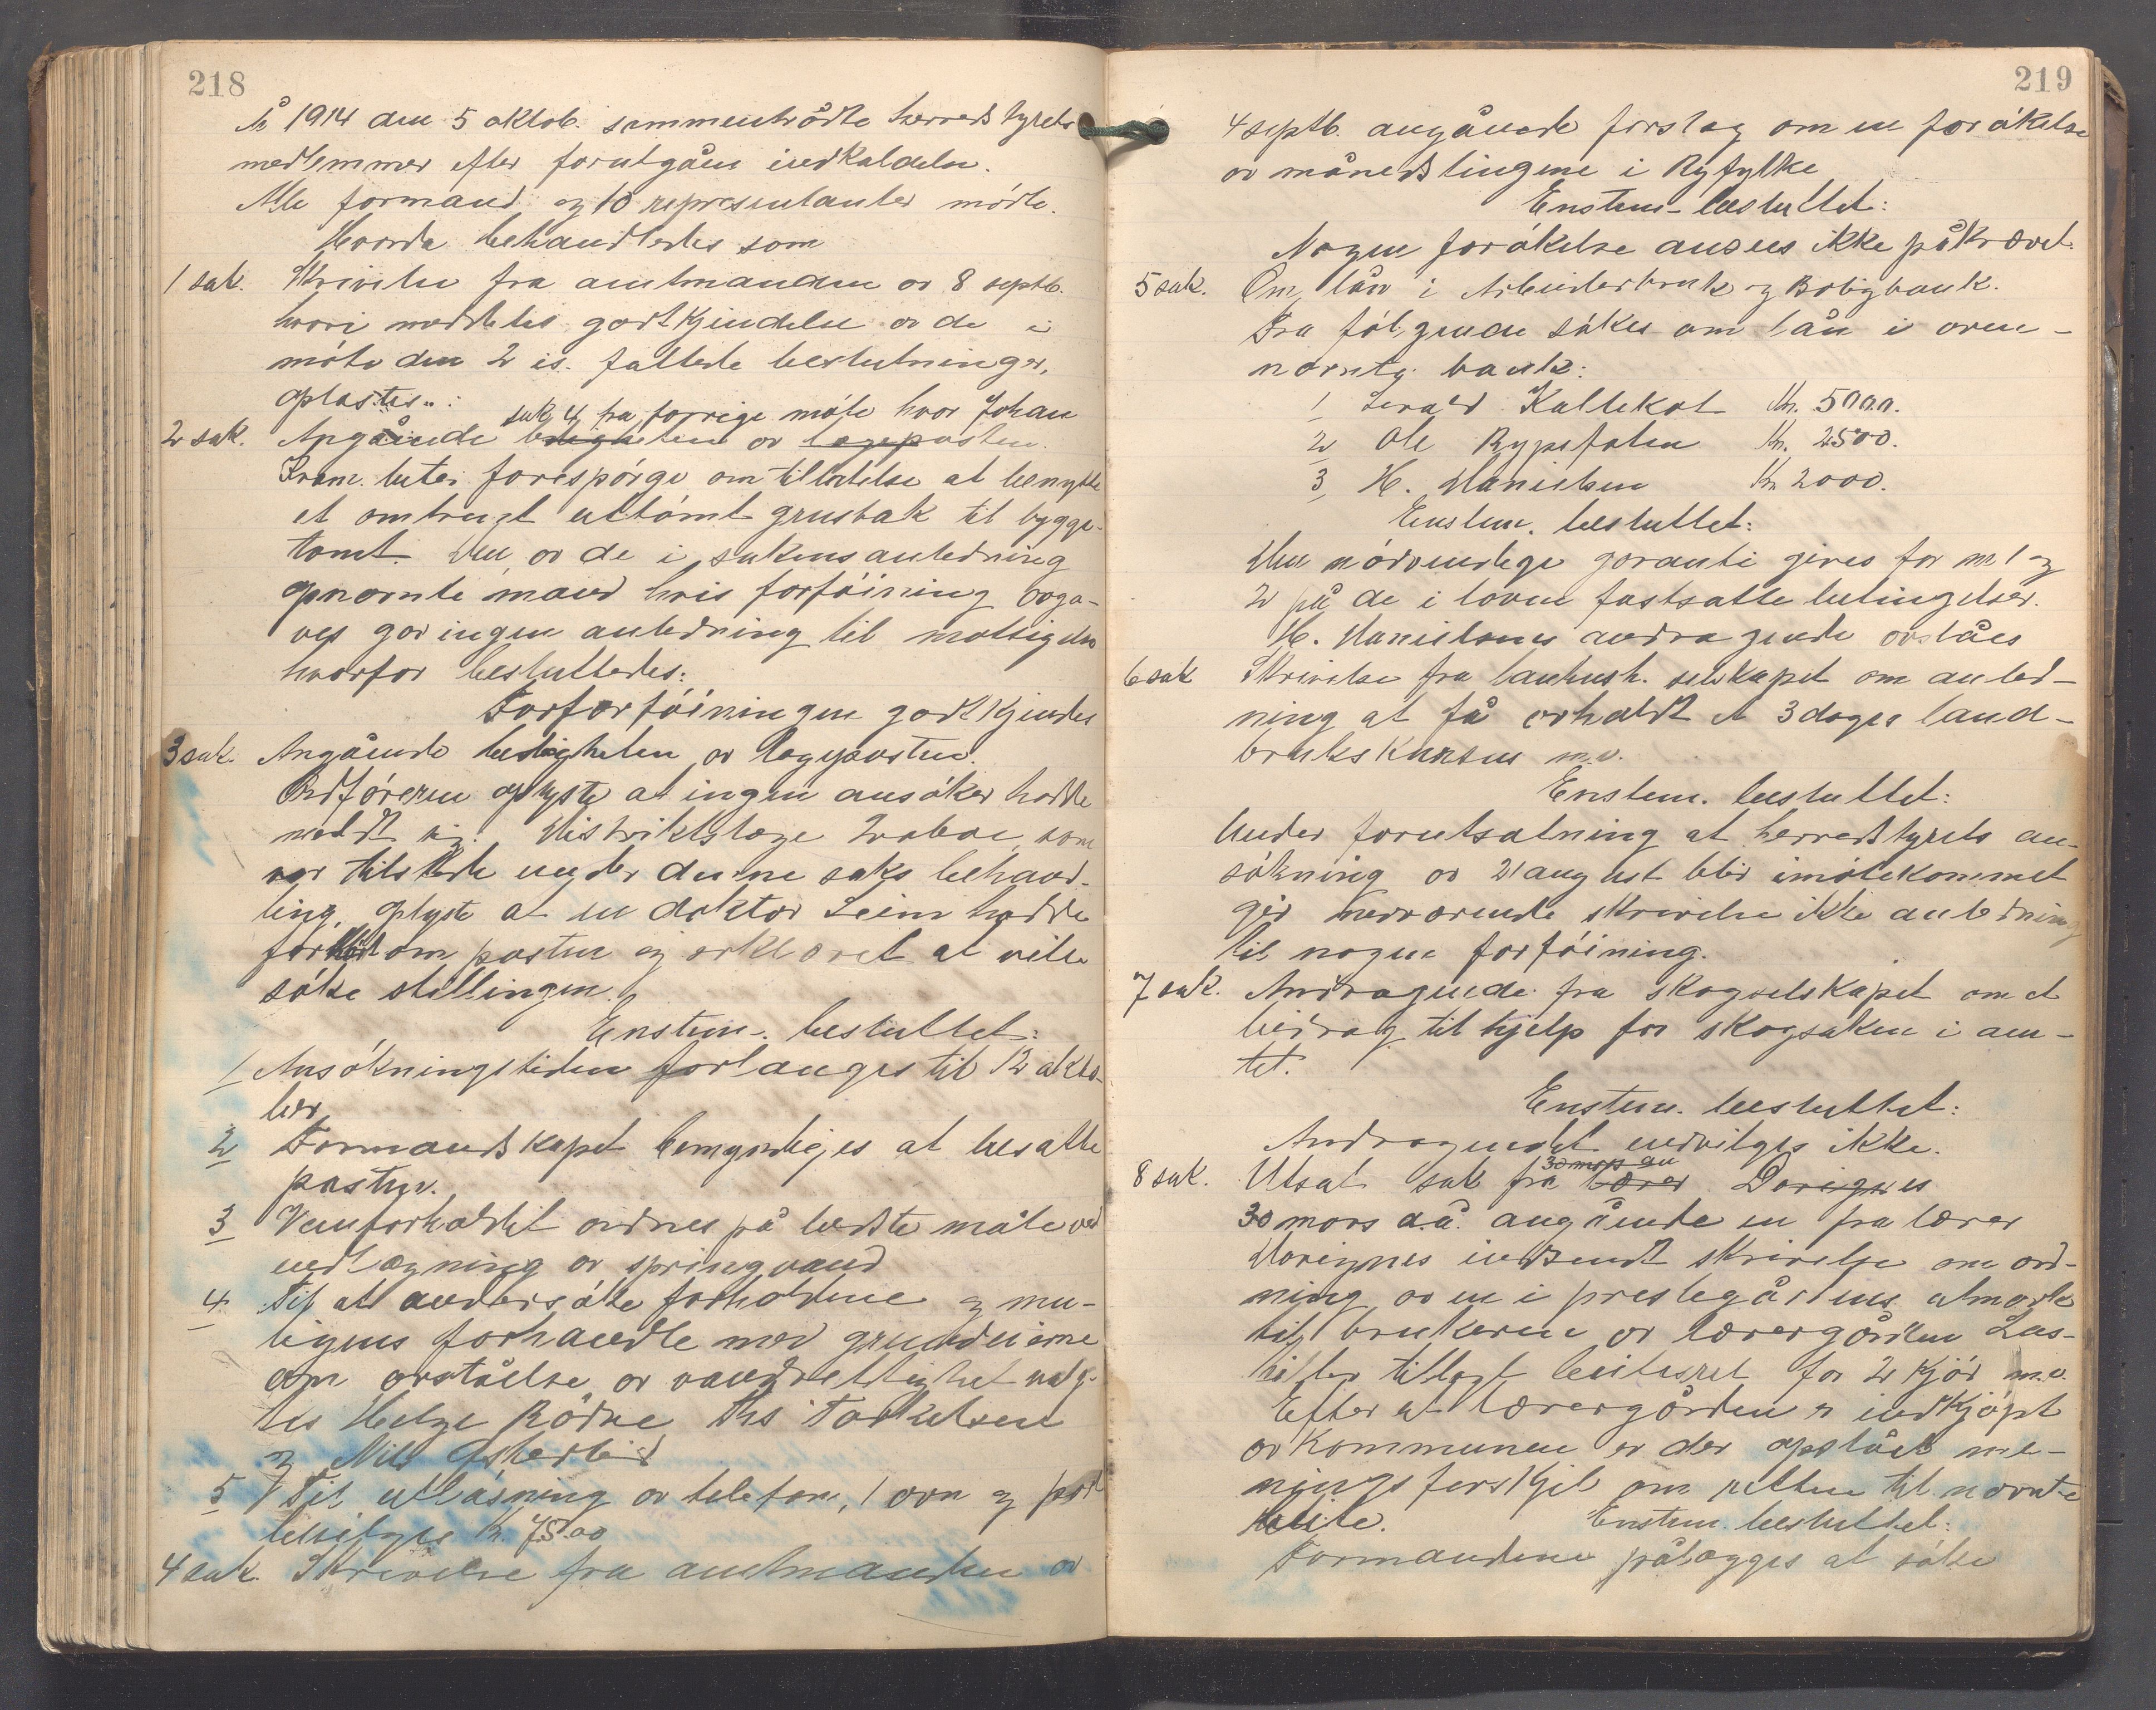 218
År 1914 den 5 oktob. sammentrådte herredstyrets
medlemmer efter forutgåen indkaldelse.
Alle formænd og 10 representanter mødte.
Hvorda behandledes som
1 sak. Skrivelse fra amtmanden av 8 septb.
hvori meddeles godtkjendelse av de i
møte den 2 is. fattede beslutninger,
oplæstes.
sak 4 fra forrige møte hvor Johan
2 sak. Angående ledigheten av lægeposten.
Fram. lutei forespørge om tillatelse at benytte
et omtrent uttømt grustak til bygge-
tomt. Den av de i sakens anledning
opnævnte mænd hvis forføining avga-
ves gav ingen anledning til motsigelse
hvorfor besluttedes:
Forføiningen godtkjendes
3 sak. Angående ledigheten av lægeposten.
Ordføreren oplyste at ingen ansøker hadde
meldt sig. Distriktslæge som
var tilstede under denne saks behand-
ling, oplyste at en doktor Leim hadde
om posten og erklæret at ville
søke stillingen.
Enstem. besluttet:
1 Ansøkningstiden forlænges til 12 okto-
ber
2 Formandskapet bemyndiges at besætte
posten.
3 Vandforholdet ordnes på bedste måte ved
nedlægning av springvand
4 Til at undersøke forholdene og mu-
ligens forhandle med grundeierne
om avståelse av vandrettighet valg-
tes Helge Rødne Ths Torkelsen
og Nils Østerhus
5 Til utløsning av telefon, 1 ovn og
bevilges kr. 75.00
4 sak. Skrivelse fra amtmanden av
219
4 septb. angående forslag om en forøkelse
av månedstingene i Ryfylke
Enstem. besluttet:
Nogen forøkelse ansees ikke påkrævet.
5 sak. Om lån i Arbeiderbruk og Boligbank.
Fra følgende søkes om lån i oven-
nævnte bank:
1 Kallekot Kr. 5000.
2 Ole Rypefolen Kr. 2500.
3 H. Danielsen Kr 2000.
Enstem. besluttet:
Den nødvendige garanti gives for nr 1 og
2 på de i loven fastsatte betingelser.
H. Danielsens andragende avslåes
6 sak Skrivelse fra landhush. selskapet om anled-
ning at få avholdt et 3 dages land-
brukskursus m.v.
Enstem. besluttet:
Under forutsætning at herredstyrets an-
søkning av 21 august blir imøtekommet
gir nærværende skrivelse ikke anledning
til nogen forføining.
7 sak. Andragende fra skogselskapet om et
bidrag til hjelp for skogsaken i am-
tet.
Enstem. besluttet:
Andragendet indvilges ikke.
30 mars au
8 sak. Utsat sak fra lærer Dorignes
30 mars d.å. angående en fra lærer
Dorignes indsendt skrivelse om ord-
ning av en i prestegårdens utmark
til brukeren av lærergården Las-
tillagt beitesret for 2 kjør m.v.
Efter at lærergården er indkjøpt
av kommunen er der opståt me-
ningsforskjel om retten til nævnte
beite. Enstem. besluttet:
Formændene pålægges at søke